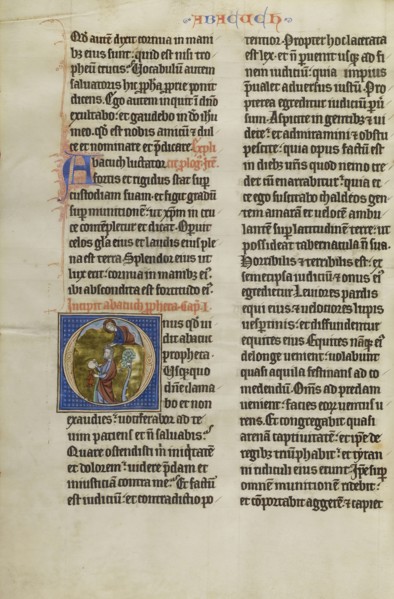 ABACUCH
Qd autem dixit cornua in mani
bz eius sunt: quid est nisi tro
pheum crucis? Vocabulum autem
salvatoris hic ppha pprie ponit
dicens. Ego autem inquit in dno
exultabo: et gaudebo in do ihu
meo. qd est nobis amicum et dul
ce et nominate et pdicare. Expli
Abacuch luctator cit plogus. Ite
fortis et rigidus stat sup
custodiam suam. et figit gradum
sup munitionem: ut xpm in cru
ce contepletur et dicat. Operuit
celos gla eius et laudis eius ple
na est terra. Splendor eius ut
lux erit: cornua in manibz eis.
ibi abscondita est fortitudo eis.
Incipit abacuch ppheta. Cap. I.
Onus qd ui
dit abacuc
propheta.
Usquequo
dne clama
bo et non
exaudies? vociferabor ad te
vim patiens et n salvabis?
Quare ostendisti m iniqitate
et dolorem? videre pdam et
iniusticiam contra me? Et factum
est iudicium: et contradictio po
tentior. Propter hoc lacerata
est lex. et n pvenit usq ad fi
nem iudicium: quia impius
pvalet adversus iustum. Pro
pterea egreditur iudicium pver
sum. Aspicite in gentibz et vi
dete: et admiramini et obstu
pescite: quia opus factum est
in diebz vris quod nemo cre
det cum enarrabitur: quia ec
ce ego suscitabo chaldeos gen
tem amaram et velocem ambu
lante sup latitudinem terre: ut
possideat tabernacula n sua.
Horribilis et terribilis est: ex
semetipsa iudicium et onus eis
egredietur. Leviores pardis
equi eius: et velociores lupis
vespertinis: et diffundentur
equites eius. Equites namq eis
de longe venient: volabunt
quasi aquila festinans ad co
medendum. Oms ad predam
venient: facies eor ventus u
rens. Et congregabit quasi
arena captivitate: et ipe de
regibz triumphabit: et tyran
ni ridiculi eius erunt. Ipe sup
omnem munitionem ridebit:
et coportabit aggere: et capiet